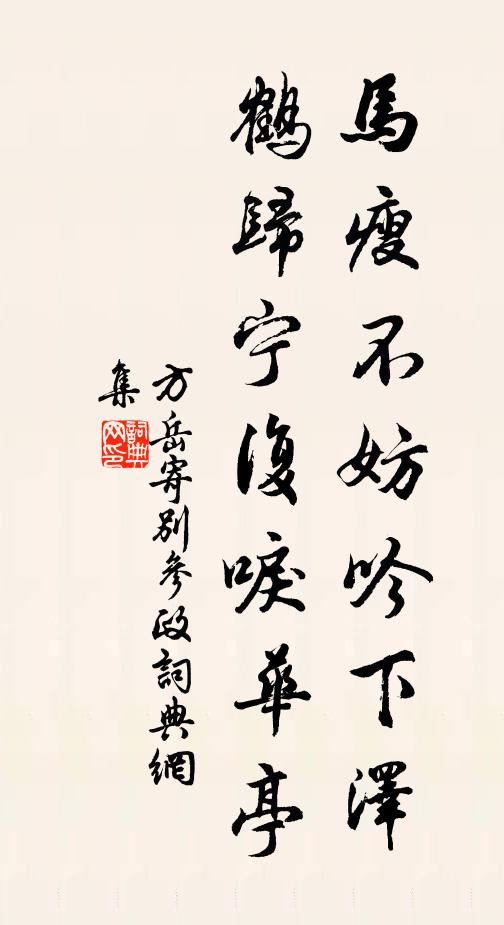 馬瘦不妨吟下澤
鶴歸宁復唳華亭
方岳寄別參政詞典網
集
詞典網印